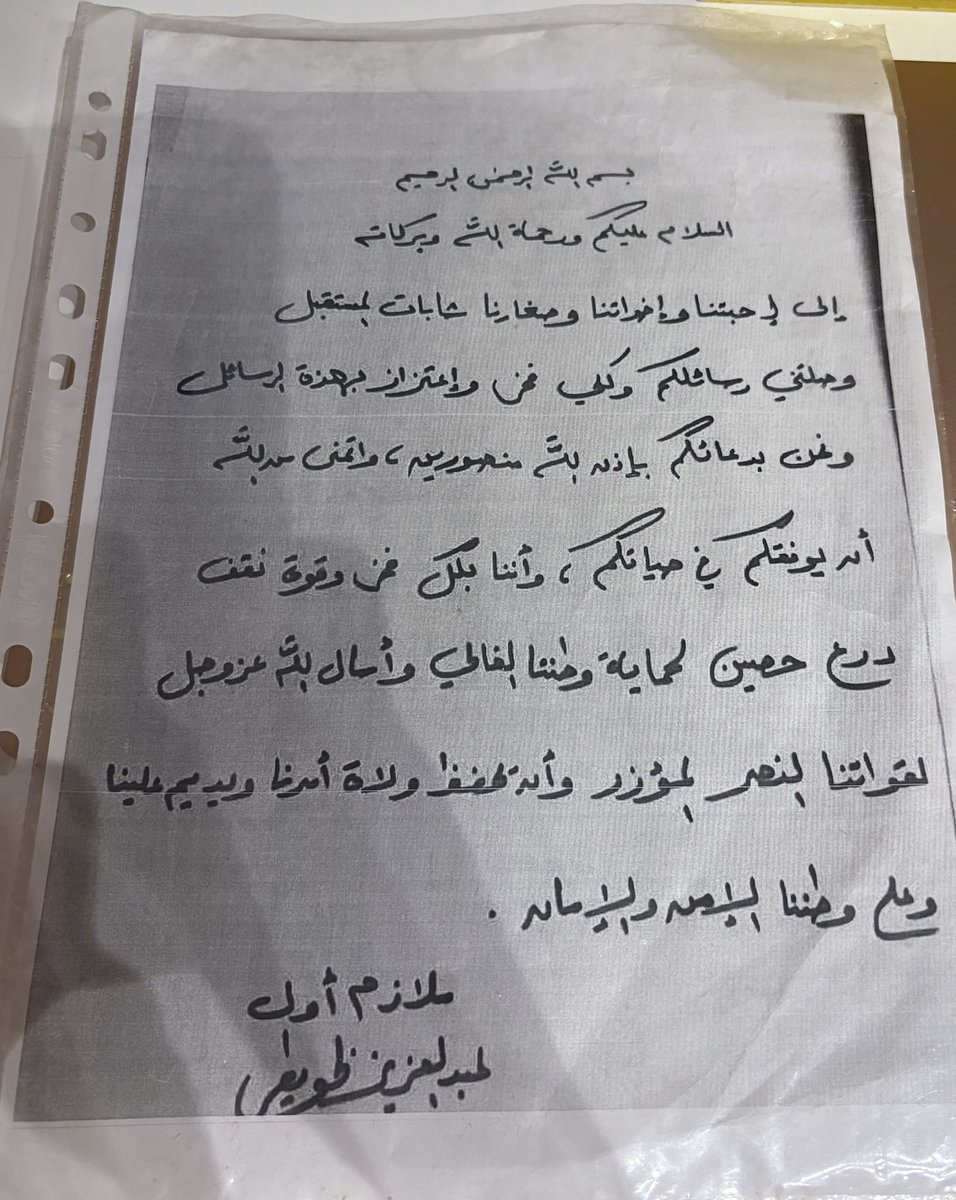 بسم الله الرحمن الرحيم
السلام عليكم ورحمة الله وبركاته
إلى احبتنا وإخواتنا وصغارنا شابات المستقبل
وصلتني رسائلكم وكلي فخر وإعتزاز بهذة الرسائل
ونحن بدعائكم بإذن الله منصورين، واتمنى من الله
أن يوفقكم في حياتكم، وأننا بكل فخر وقوة نقف
درع حصين لحماية وطننا الغالي وأسال الله عزوجل
لقواتنا النصر المؤزر وأن يحفظ ولاة أمرنا ويديم علينا
وعلى وطننا الامن والايمان .
ملازم أول
عبدالعزيز